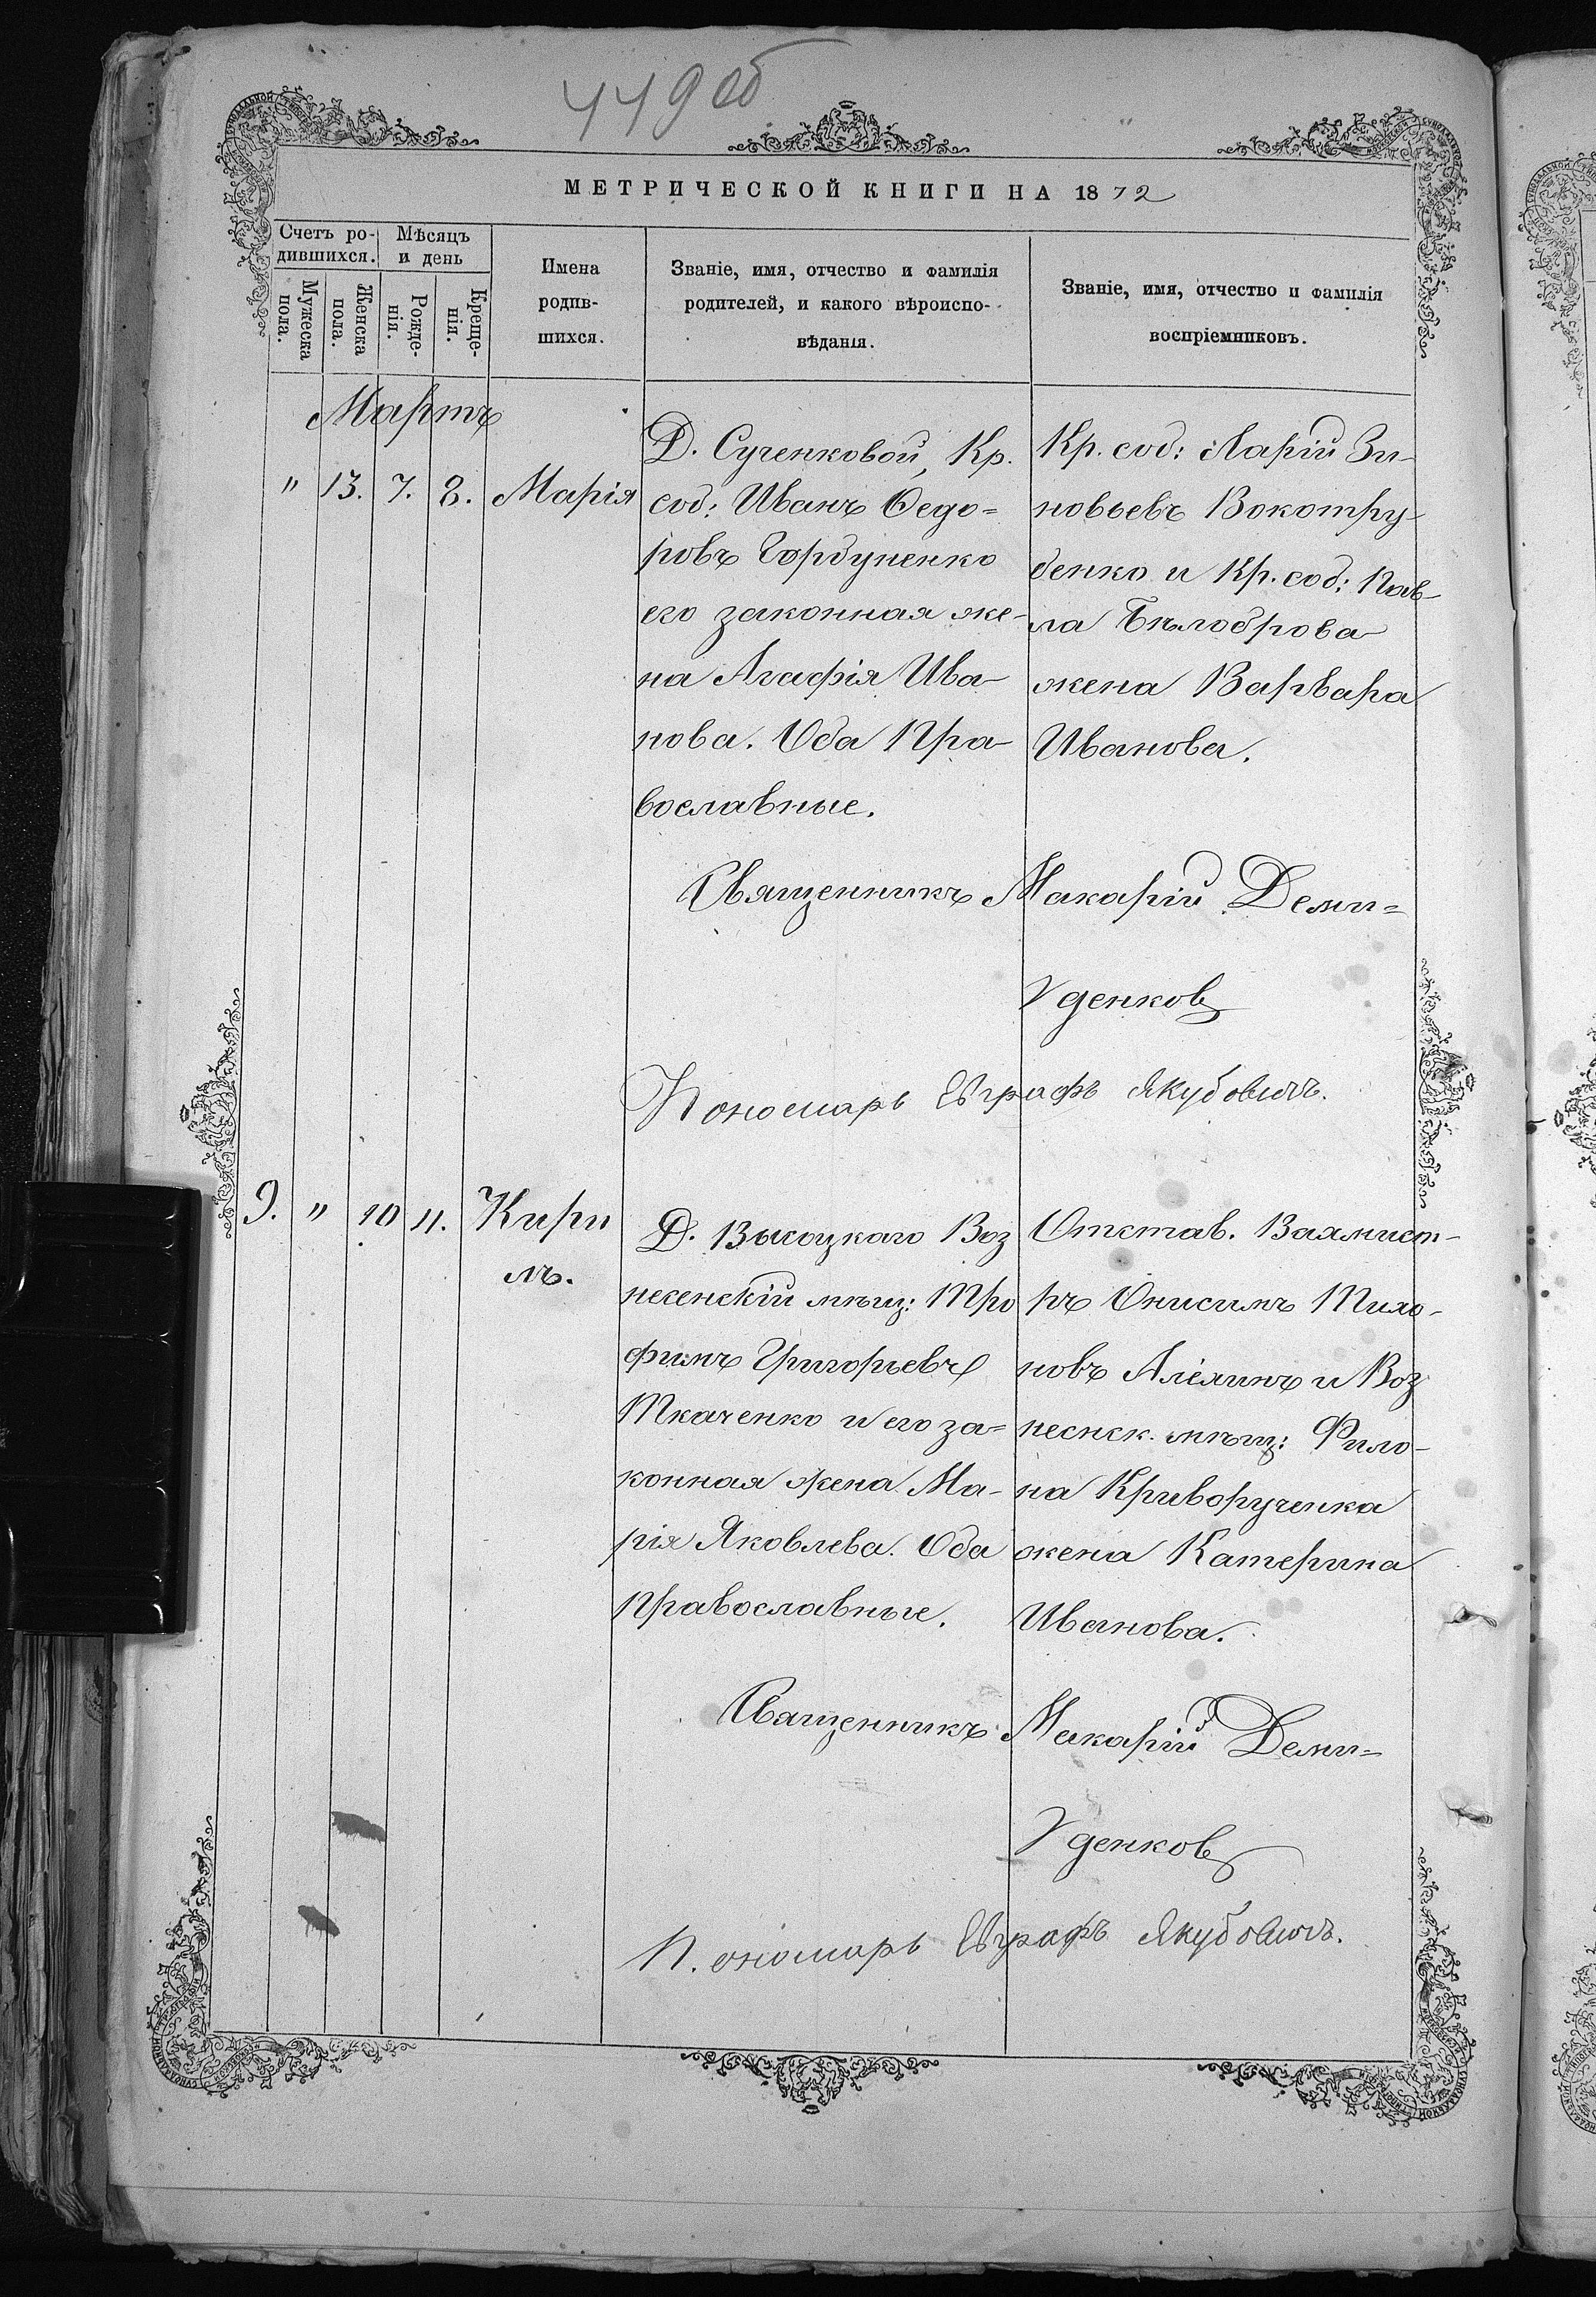 449 об
МЕТРИЧЕСКОЙ КНИГИ НА 1872
Счетъ ро-
дившихся.
Мѣсяцъ
и день
Мужеска
пола.
Женска
пола.
Рожде-
нія.
Креще-
нія.
Имена
родив-
шихся.
Званіе, имя, отчество и фамилія
родителей, и какого вѣроиспо-
вѣданія.
Званіе, имя, отчество и фамилія
воспріемниковъ.
Мартъ
" 13. 7. 8. Марія
Д. Сученковой, Кр.
соб: Иванъ Ѳедо=
ровъ Горбуненко
его законная же-
на Агафія Ива-
нова. Оба Пра-
вославные.
Кр. соб: Ларій Зи-
новьевъ Вокотру-
бенко и Кр. соб: Пав-
ла Бѣлоброва
жена Варвара
Иванова.
Священникъ Макарій Деми=
денков
Пономарь Евграфъ Якубовичъ.
9. " 10 11. Кири
лъ.
Д. Высоцкаго Воз
несенскій мѣщ: Тро
фимъ Григорьевъ
Ткаченко и его за=
конная жена Ма-
рія Яковлева. Оба
православные.
Отстав. Вахмист-
ръ Онисимъ Тихо-
новъ Алёхинъ и Воз
неснск. мѣщ: Фило-
на Криворученка
жена Катерина
Иванова.
Священникъ Макарій Деми=
денков
Пономарь Евграфъ Якубовичъ.